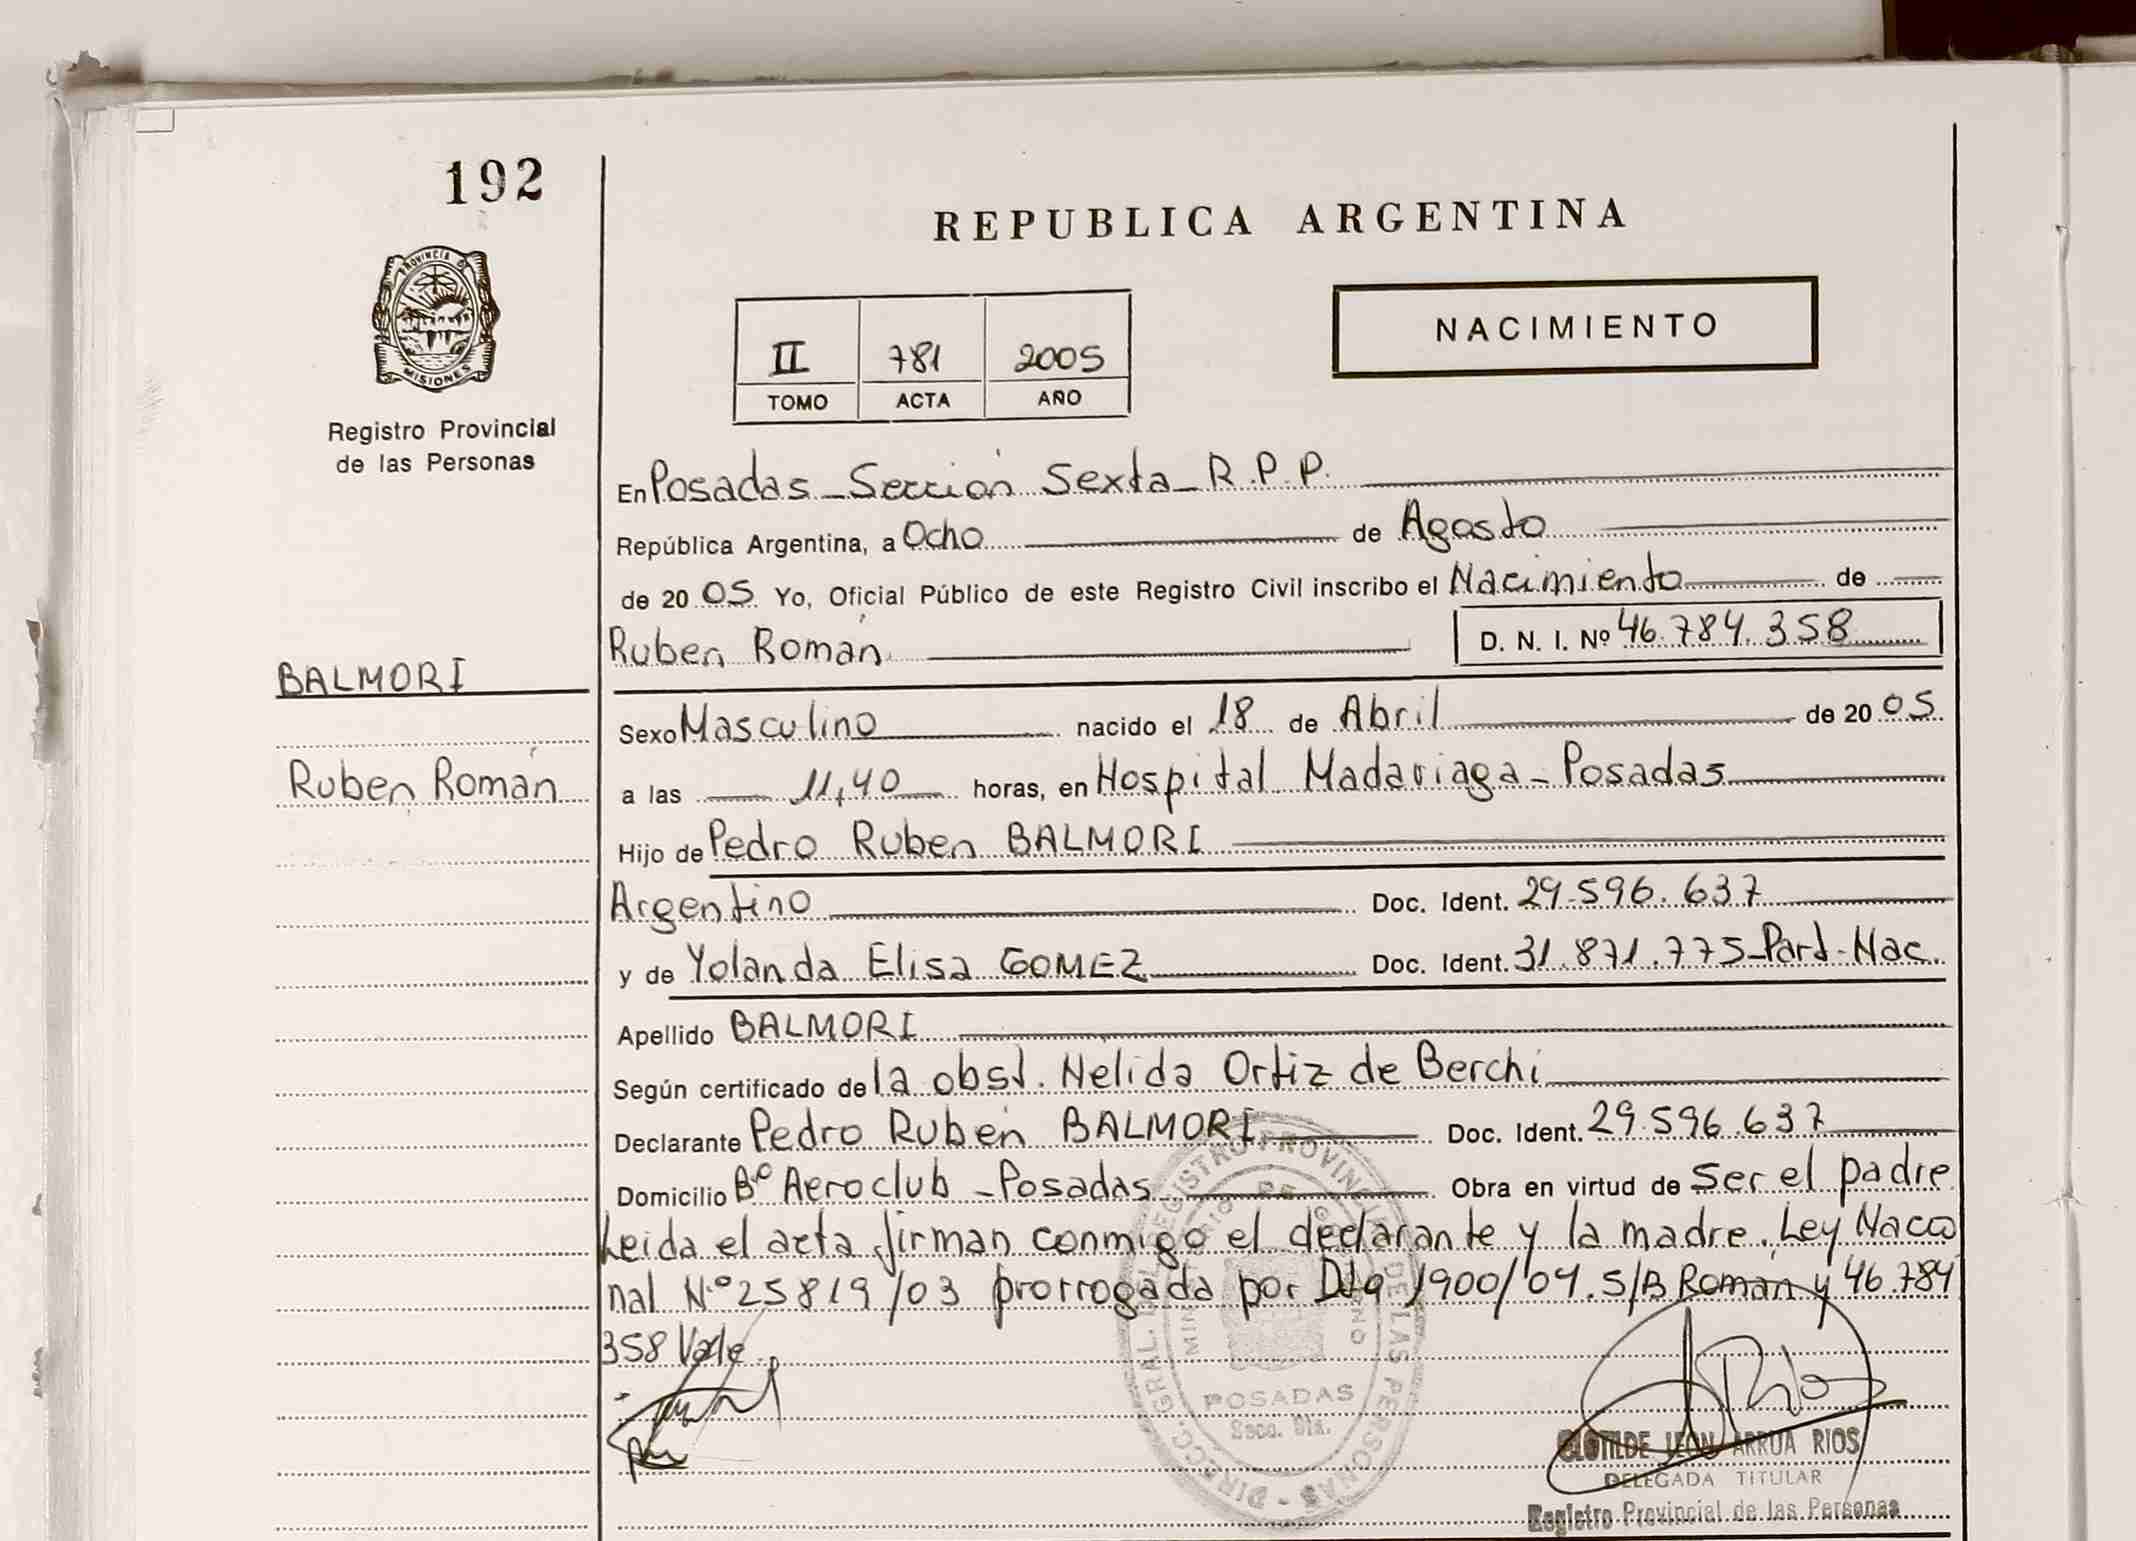 192
REPUBLICA ARGENTINA
PROVINCIA DE
MISIONES
NACIMIENTO
II 781 2005
TOMO ACTA AÑO
Registro Provincial
de las Personas
En Posadas - Sección Sexta - R.P.P.
República Argentina, a Ocho de Agosto
de 20 05 Yo, Oficial Público de este Registro Civil inscribo el Nacimiento de
Ruben Román D. N. I. Nº 46.784.358
BALMORI
Sexo Masculino nacido el 18 de Abril de 20 05
Ruben Román
a las 11,40 horas, en Hospital Madariaga - Posadas
Hijo de Pedro Ruben BALMORI
Argentino Doc. Ident. 29.596.637
y de Yolanda Elisa GOMEZ Doc. Ident. 31.871.775 - Part. Nac.
Apellido BALMORI
Según certificado de la obst. Nelida Ortiz de Berchi
Declarante Pedro Rubén BALMORI Doc. Ident. 29.596.637
Domicilio Bº Aeroclub - Posadas Obra en virtud de Ser el padre
Leida el acta firman conmigo el declarante y la madre. Ley Nacio
nal Nº 25819/03 prorrogada por 1900/04. S/B Román y 46.784
358 Vale.
DIRECC. GRAL. DEL REGISTRO PROVINCIAL DE LAS PERSONAS
POSADAS
CLOTILDE LEON ARRUA RIOS
DELEGADA TITULAR
Registro Provincial de las Personas